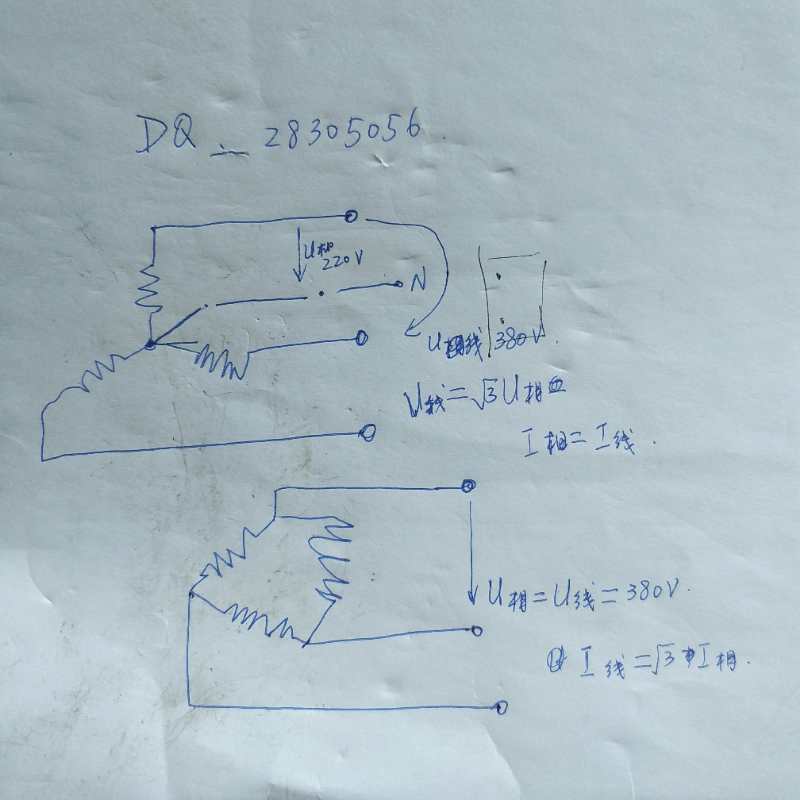 DQ_28305056
U相
220V
N
U线 380V.
U线=√3U相
I相=I线.
U相=U线=380V.
I线=√3I相.